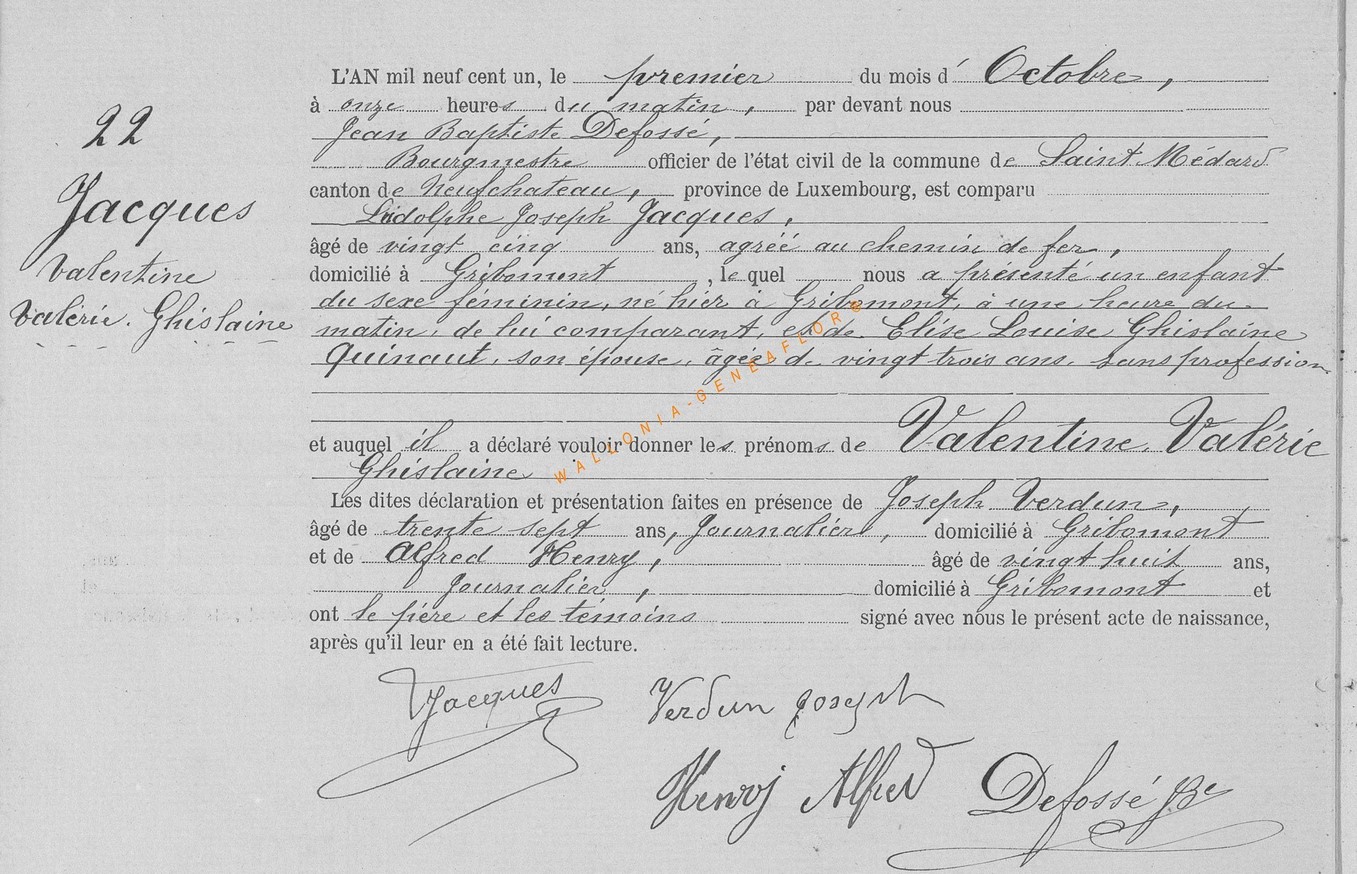 22
Jacques
Valentine
Valérie. Ghislaine
L'AN mil neuf cent un, le premier du mois d' Octobre,
à onze heures du matin, par devant nous
Jean Baptiste Defossé,
Bourgmestre officier de l'état civil de la commune de Saint Médard
canton de Neufchateau, province de Luxembourg, est comparu
Joseph Jacques,
âgé de vingt cinq ans, agréé au chemin de fer,
domicilié à Gribomont, lequel nous a présenté un enfant
du sexe féminin, né hier à Gribomont, à une heure du
matin, de lui comparant, et de Elise Louise Ghislaine
Quinaut, son épouse, âgée de vingt trois ans, sans profession
et auquel il a déclaré vouloir donner les prénoms de Valentine, Valérie
Ghislaine
Les dites déclaration et présentation faites en présence de Joseph Verdun,
âgé de trente sept ans, Journalier, domicilié à Gribomont
et de Alfred Henry, âgé de vingt huit ans,
Journalier, domicilié à Gribomont et
ont le père et les témoins signé avec nous le présent acte de naissance,
après qu'il leur en a été fait lecture.
Jacques
Verdun Joseph
Henry Alfred
Defossé JBe
WALLONIA-GENEAFLORE